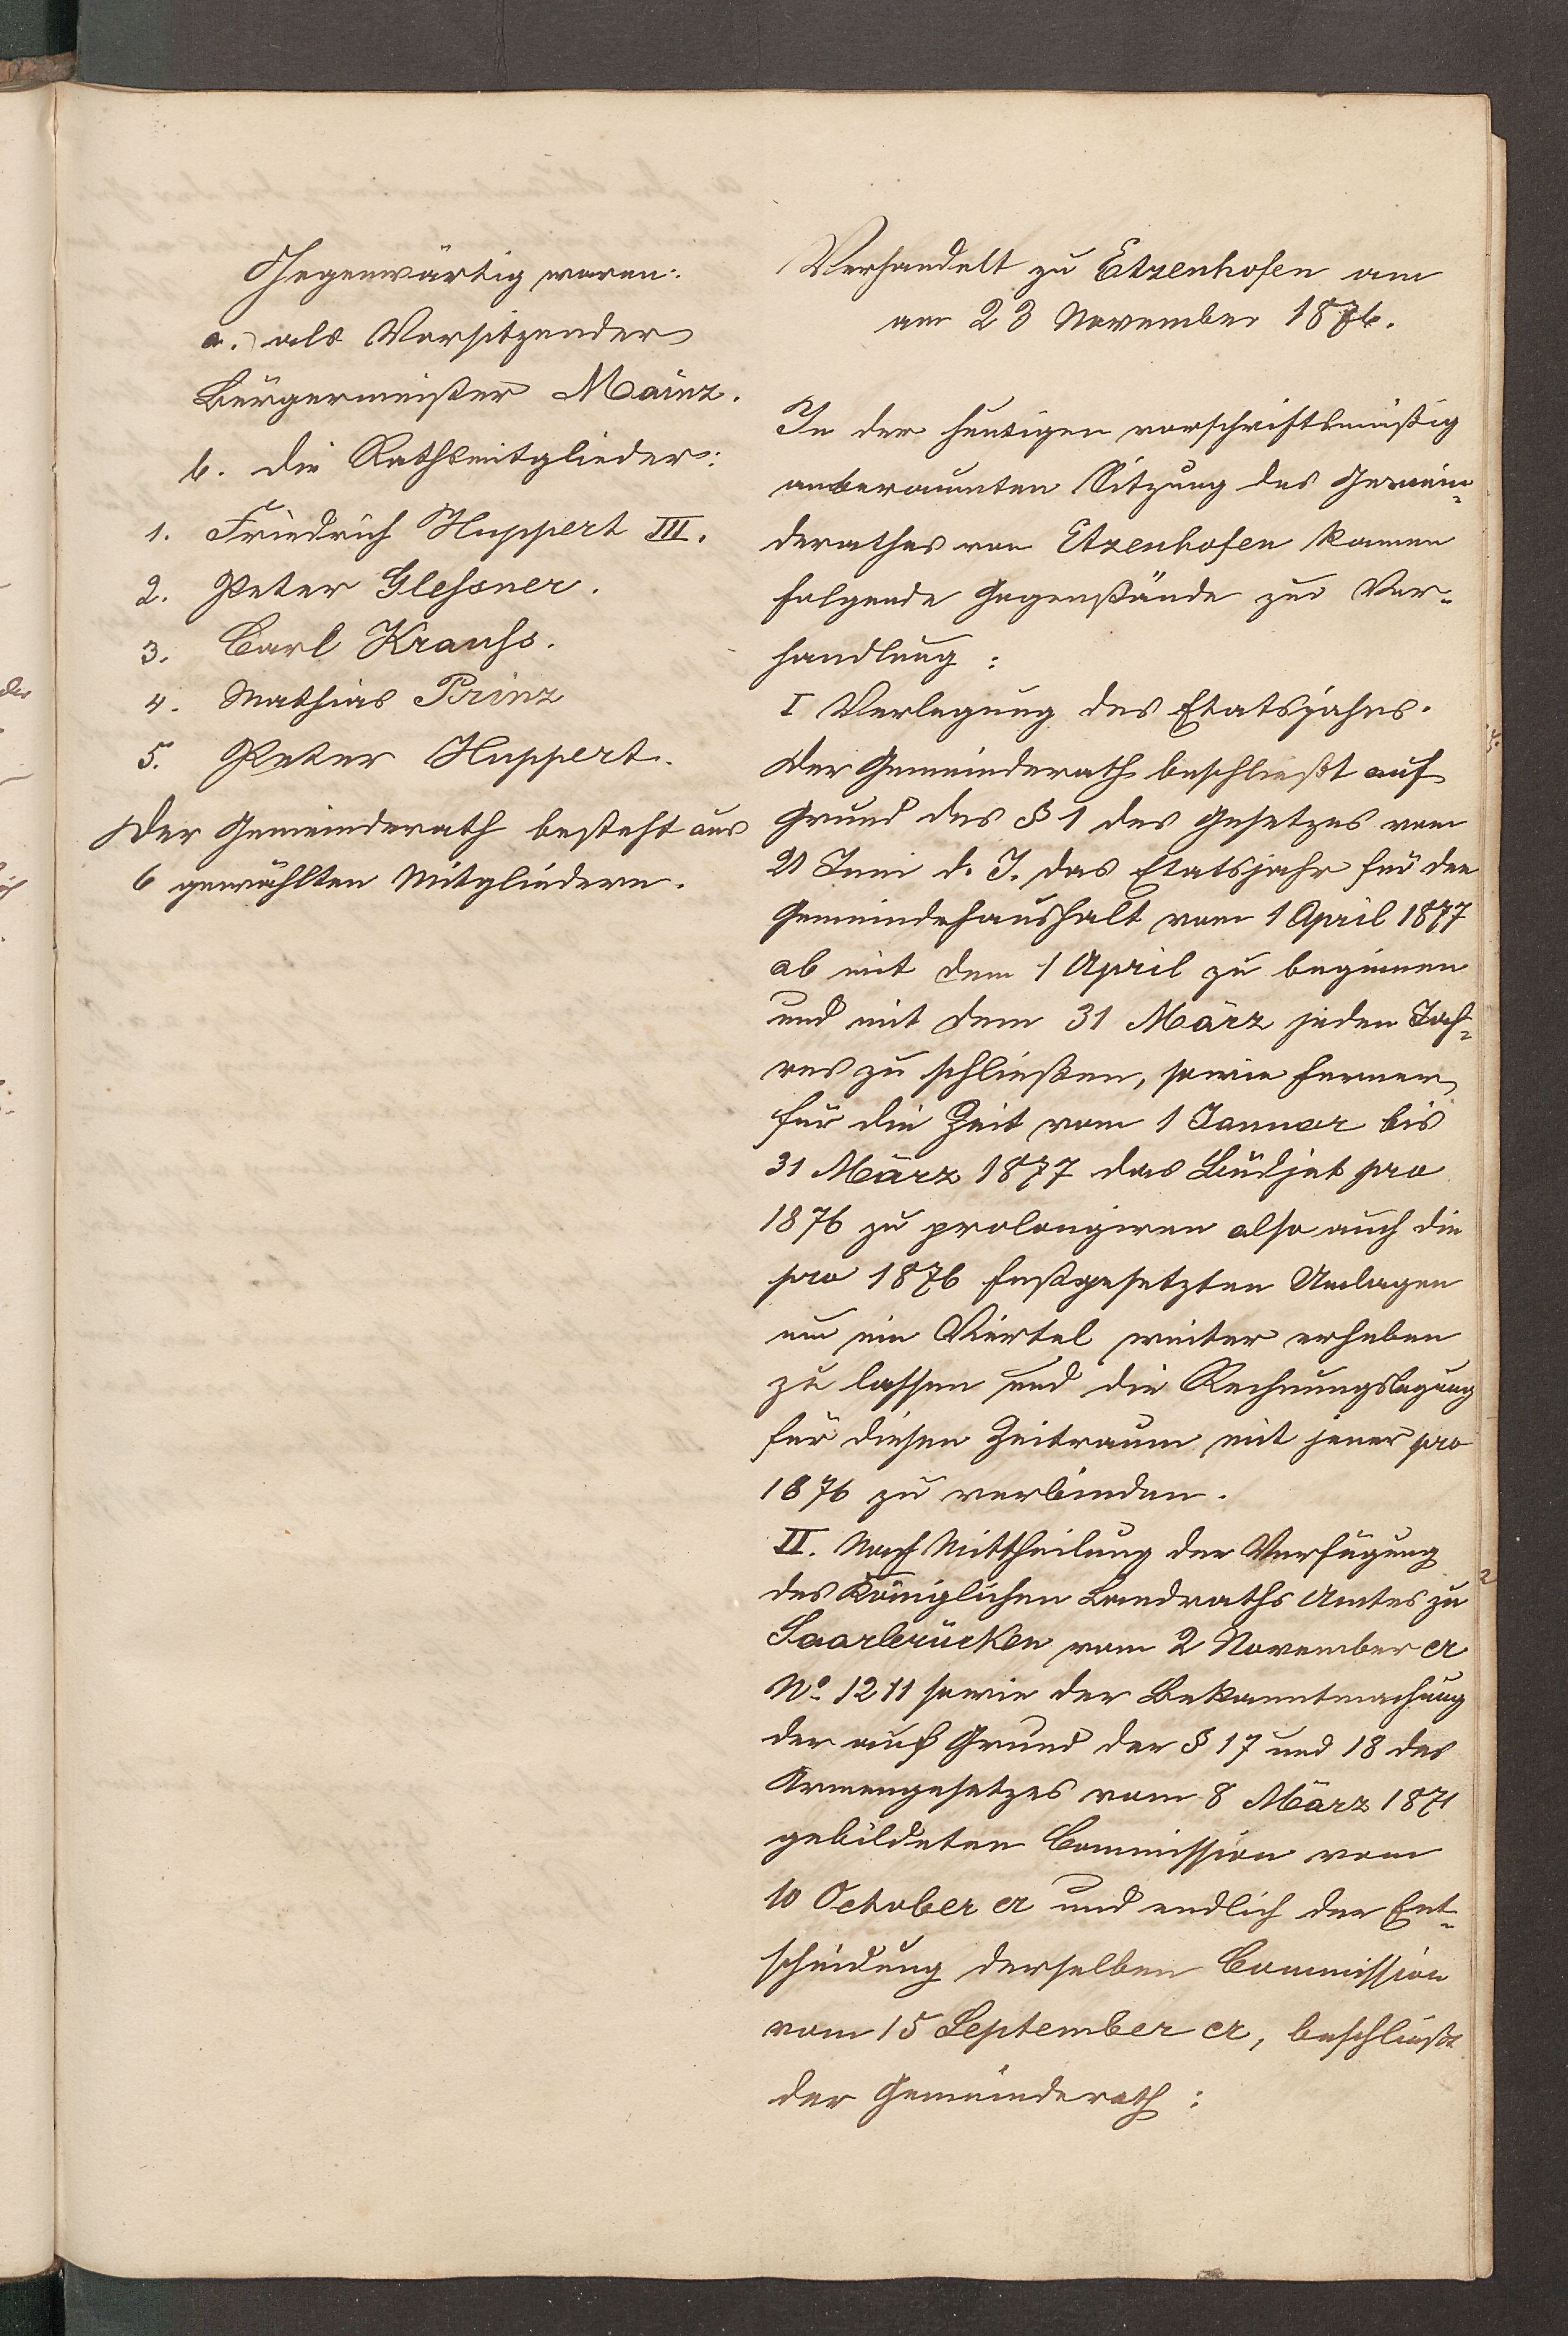 Gegenwärtig waren:
a. als Vorsitzender
Bürgermeister Mainz.
b. die Rathsmitglieder:
1. Friedrich Huppert III.
2. Peter Glessner.
3. Carl Krauss.
4. Mathias Prinz
5. Peter Huppert.
Der Gemeinderath besteht aus
6 gewählten Mitgliedern.
Verhandelt zu Etzenhofen am
am 23 November 1876.
In der heutigen vorschriftsmäßig
anberaumten Sitzung des Gemein-
derathes von Etzenhofen kamen
folgende Gegenstände zur Ver-
handlung:
I Verlegung des Etatsjahres.
Der Gemeinderath beschließt auf
Grund des § 1 des Gesetzes vom
21 Juni d. J. das Etatsjahr für den
Gemeindehaushalt vom 1 April 1877
ab mit dem 1 April zu beginnen
und mit dem 31 März jeden Jah-
res zu schließen, sowie ferner
für die Zeit vom 1 Januar bis
31 März 1877 das Büdjet pro
1876 zu prolongiren also auch die
pro 1876 festgesetzten Umlagen
um ein Viertel weiter erheben
zu lassen und die Rechnungslagung
für diesen Zeitraum mit jener pro
1876 zu verbinden.
II. Nach Mittheilung der Verfügung
des Königlichen Landraths Amtes zu
Saarbrücken vom 2 November cr
No. 1211 sowie der Bekanntmachung
der auf Grund der § 17 und 18 des
Armengesetzes vom 8 März 1871
gebildeten Commission vom
10 October cr und endlich der Ent-
scheidung derselben Commission
vom 15 September cr, beschließt
der Gemeinderath: